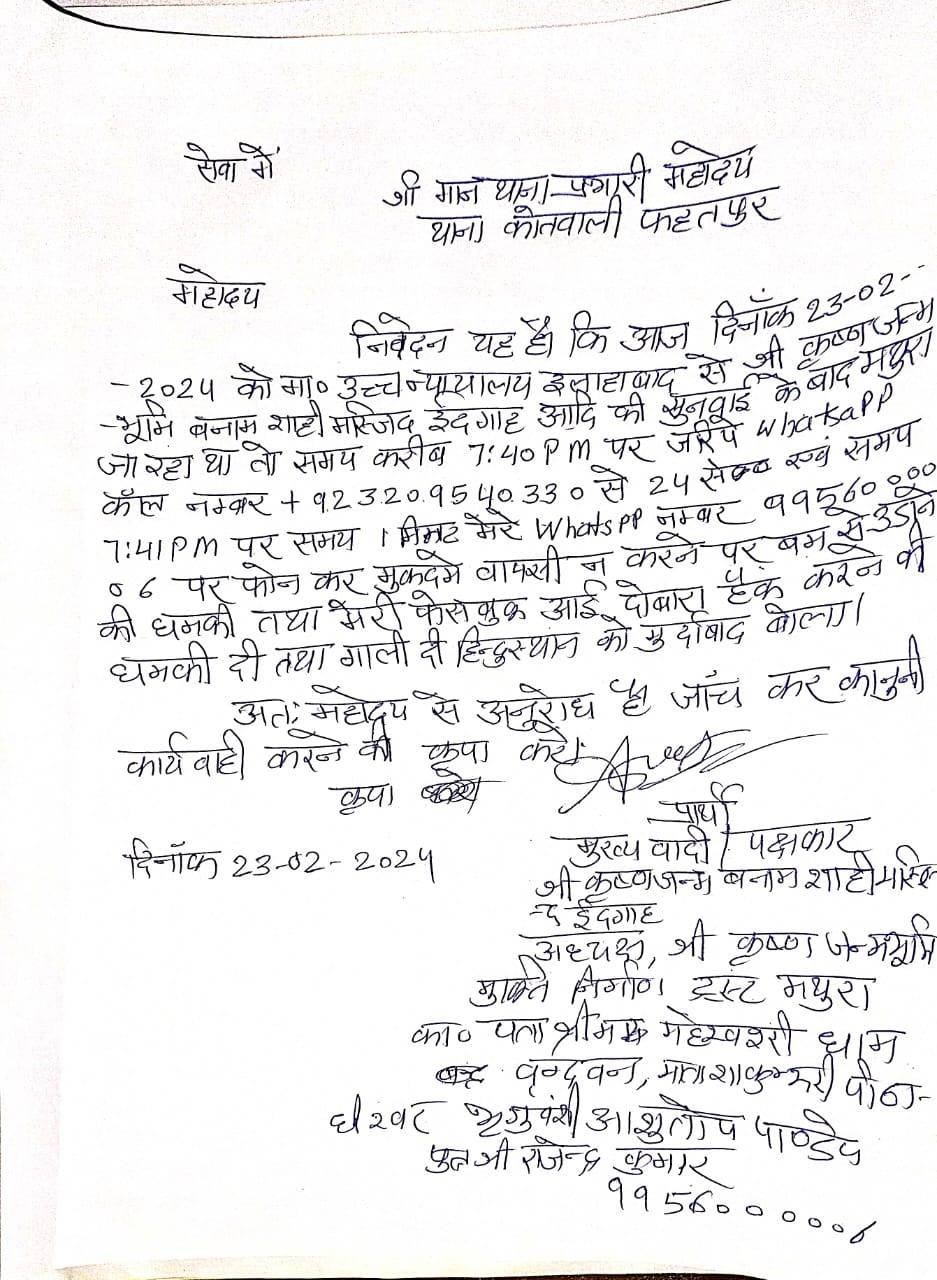 सेवा में
श्री मान थाना प्रभारी महोदय
थाना कोतवाली फहतपुर
महोदय
निवेदन यह है। कि आज दिनाँक 23-02-
-2024 को मा० उच्च न्यायालय इलाहाबाद से श्री कृष्ण जन्म
-भूमि बनाम शाही मस्जिद ईदगाह आदि की सुनवाई के बाद मथुरा
जा रहा था तो समय करीब 7:40 PM पर जरिये Whatsapp
कॉल नम्बर +923209540330 से 24 से० एवं समय
7:41 PM पर समय 1 मिनट मेरे WhatsPP नम्बर 99560000
06 पर फोन कर मुकदमे वापसी न करने पर बम से उडाने
की धमकी तथा मेरी फेसबुक आई दोबारा हैक करने की
धमकी दी तथा गाली दी हिन्दुस्थान को मुर्दाबाद बोला।
अतः महोदय से अनुरोध है जाँच कर कानुनी
कार्यवाही करने की कृपा करे।
कृपा
प्रार्थी
दिनाँक 23-02-2024
मुख्य वादी / पक्षकार
श्री कृष्णजन्म बनाम शाही मस्जि
-द ईदगाह
अध्यक्ष, श्री कृष्ण जन्मभूमि
मुक्ति निर्माण ट्रस्ट मथुरा
का० पता श्री महेस्वरी धाम
वृन्दवन, माता शाकुम्भरी पीठा-
धीश्वर भृगुवंशी आशुतोष पाण्डेय
पुत्र श्री राजेन्द्र कुमार
9956000006